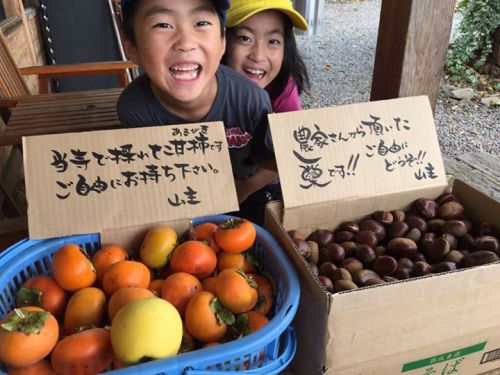 当寺で採れた甘柿です
あまがき
ご自由にお持ち下さい。
山主
農家さんから頂いた
栗です!!
ご自由に
どうぞ!!
山主
熟成素材
そば